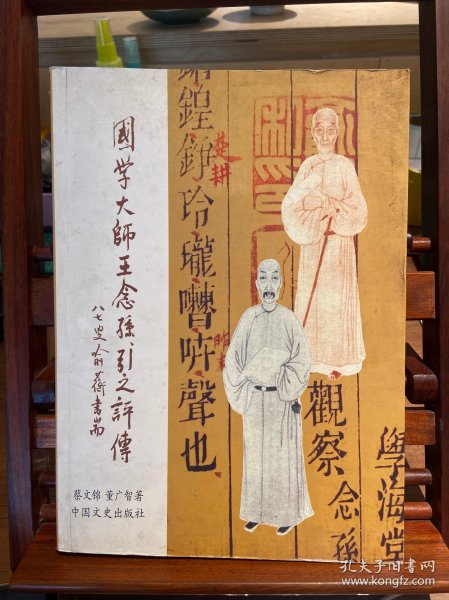 國学大師王念孫引之評傳
八七叟俞蘅書耑
蔡文锦 董广智著
中国文史出版社
鍠錚玲瓏嘈吰聲也
楚耕
觀察念孫
學海堂
孔夫子旧书网
www.kongfz.com